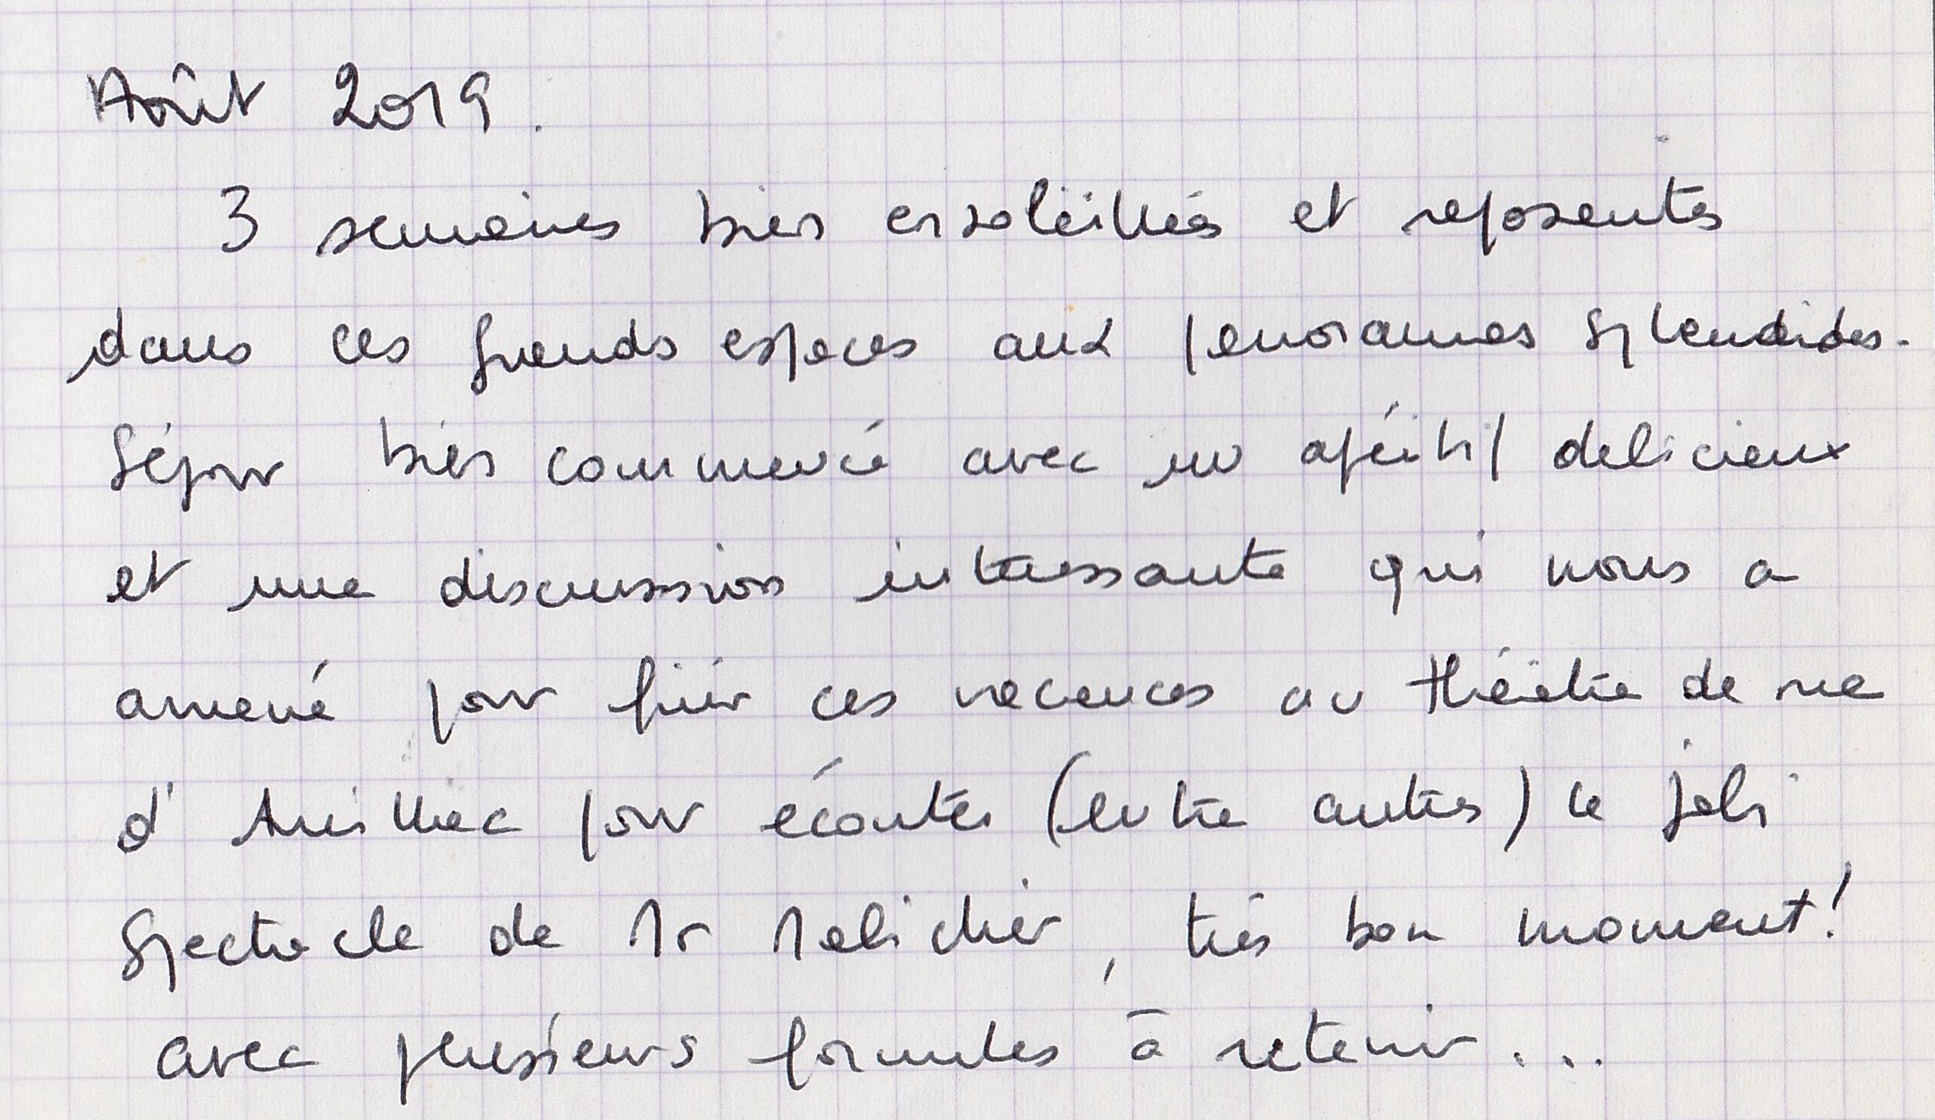 Août 2019.
3 semaines bien ensoleillées et reposantes
dans ces grands espaces aux panoramas splendides.
Séjour bien commencé avec un apéritif delicieux
et une discussion intéressante qui nous a
amené pour finir ces vacances au théâtre de rue
d'Aurillac pour écouter (entre autres) le joli
spectacle de Mr , très bon moment!
avec plusieurs formules à retenir...